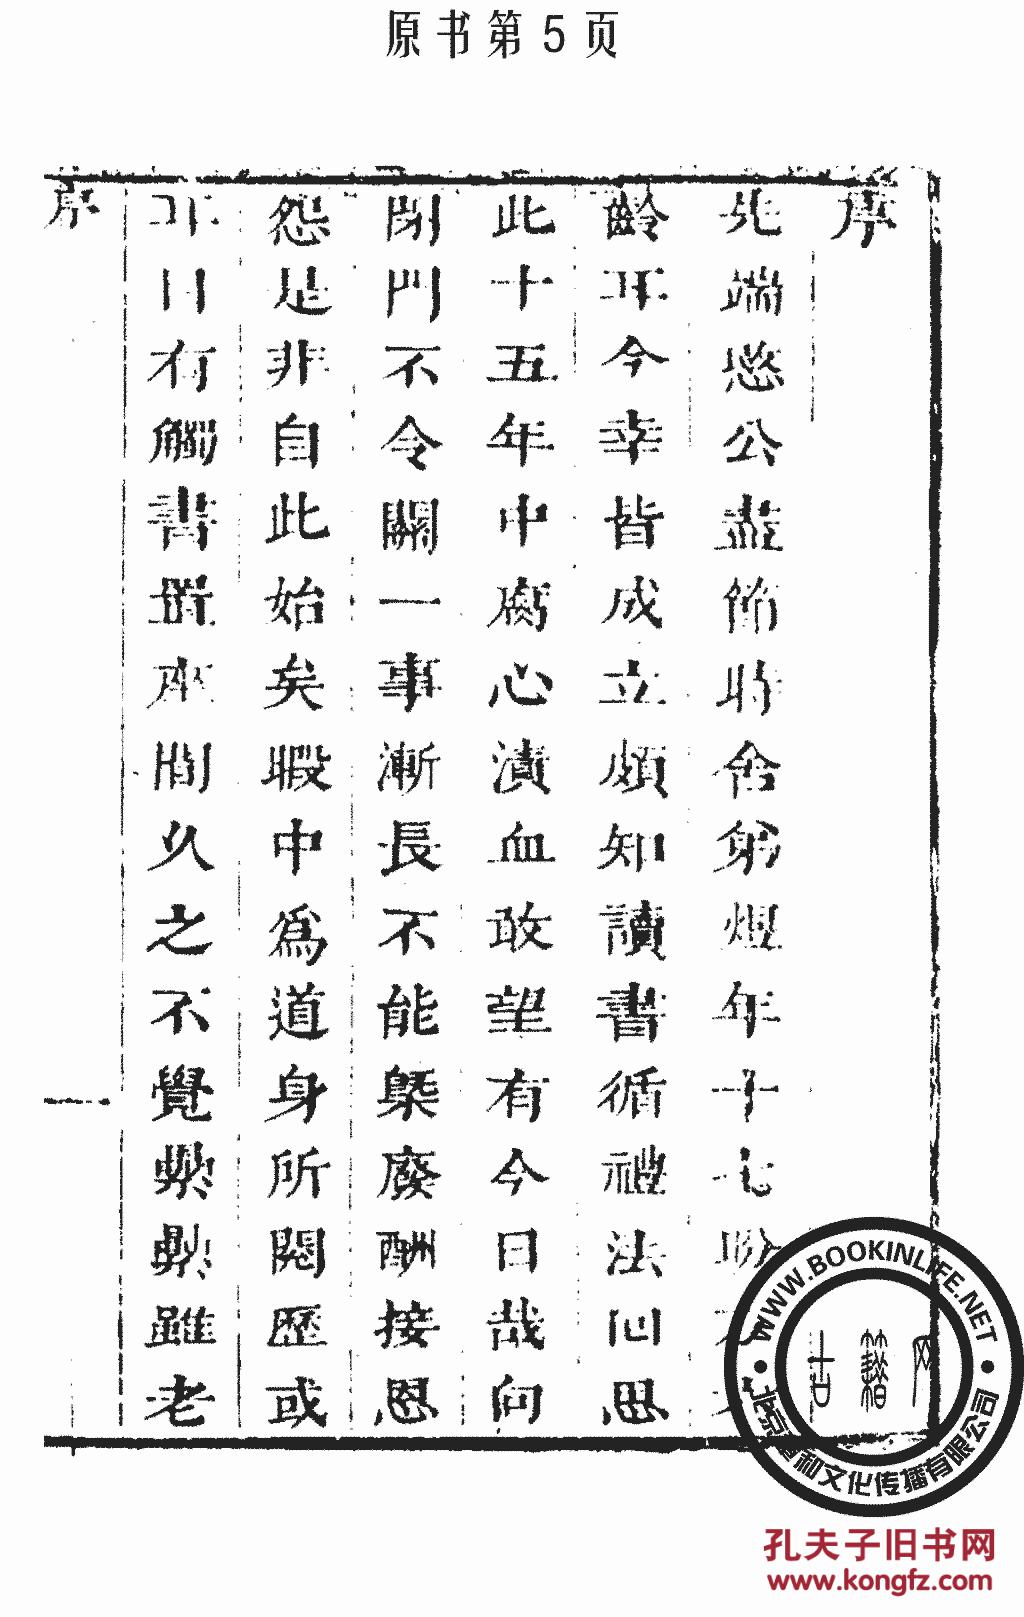 原书第5页
序
先端愍公盡節時舍弟煜年十七
齡耳今幸皆成立頗知讀書循禮法回思
此十五年中腐心潰血敢望有今日哉向
閉門不令關一事漸長不能槩廢酬接恩
怨是非自此始矣暇中為道身所閱歷或
耳目有觸書置來間久之不覺纍纍雖老
序
一
WWW.BOOKINLIFE.NET
古籍网
北京 和文化传播有限公司
孔夫子旧书网
www.kongfz.com